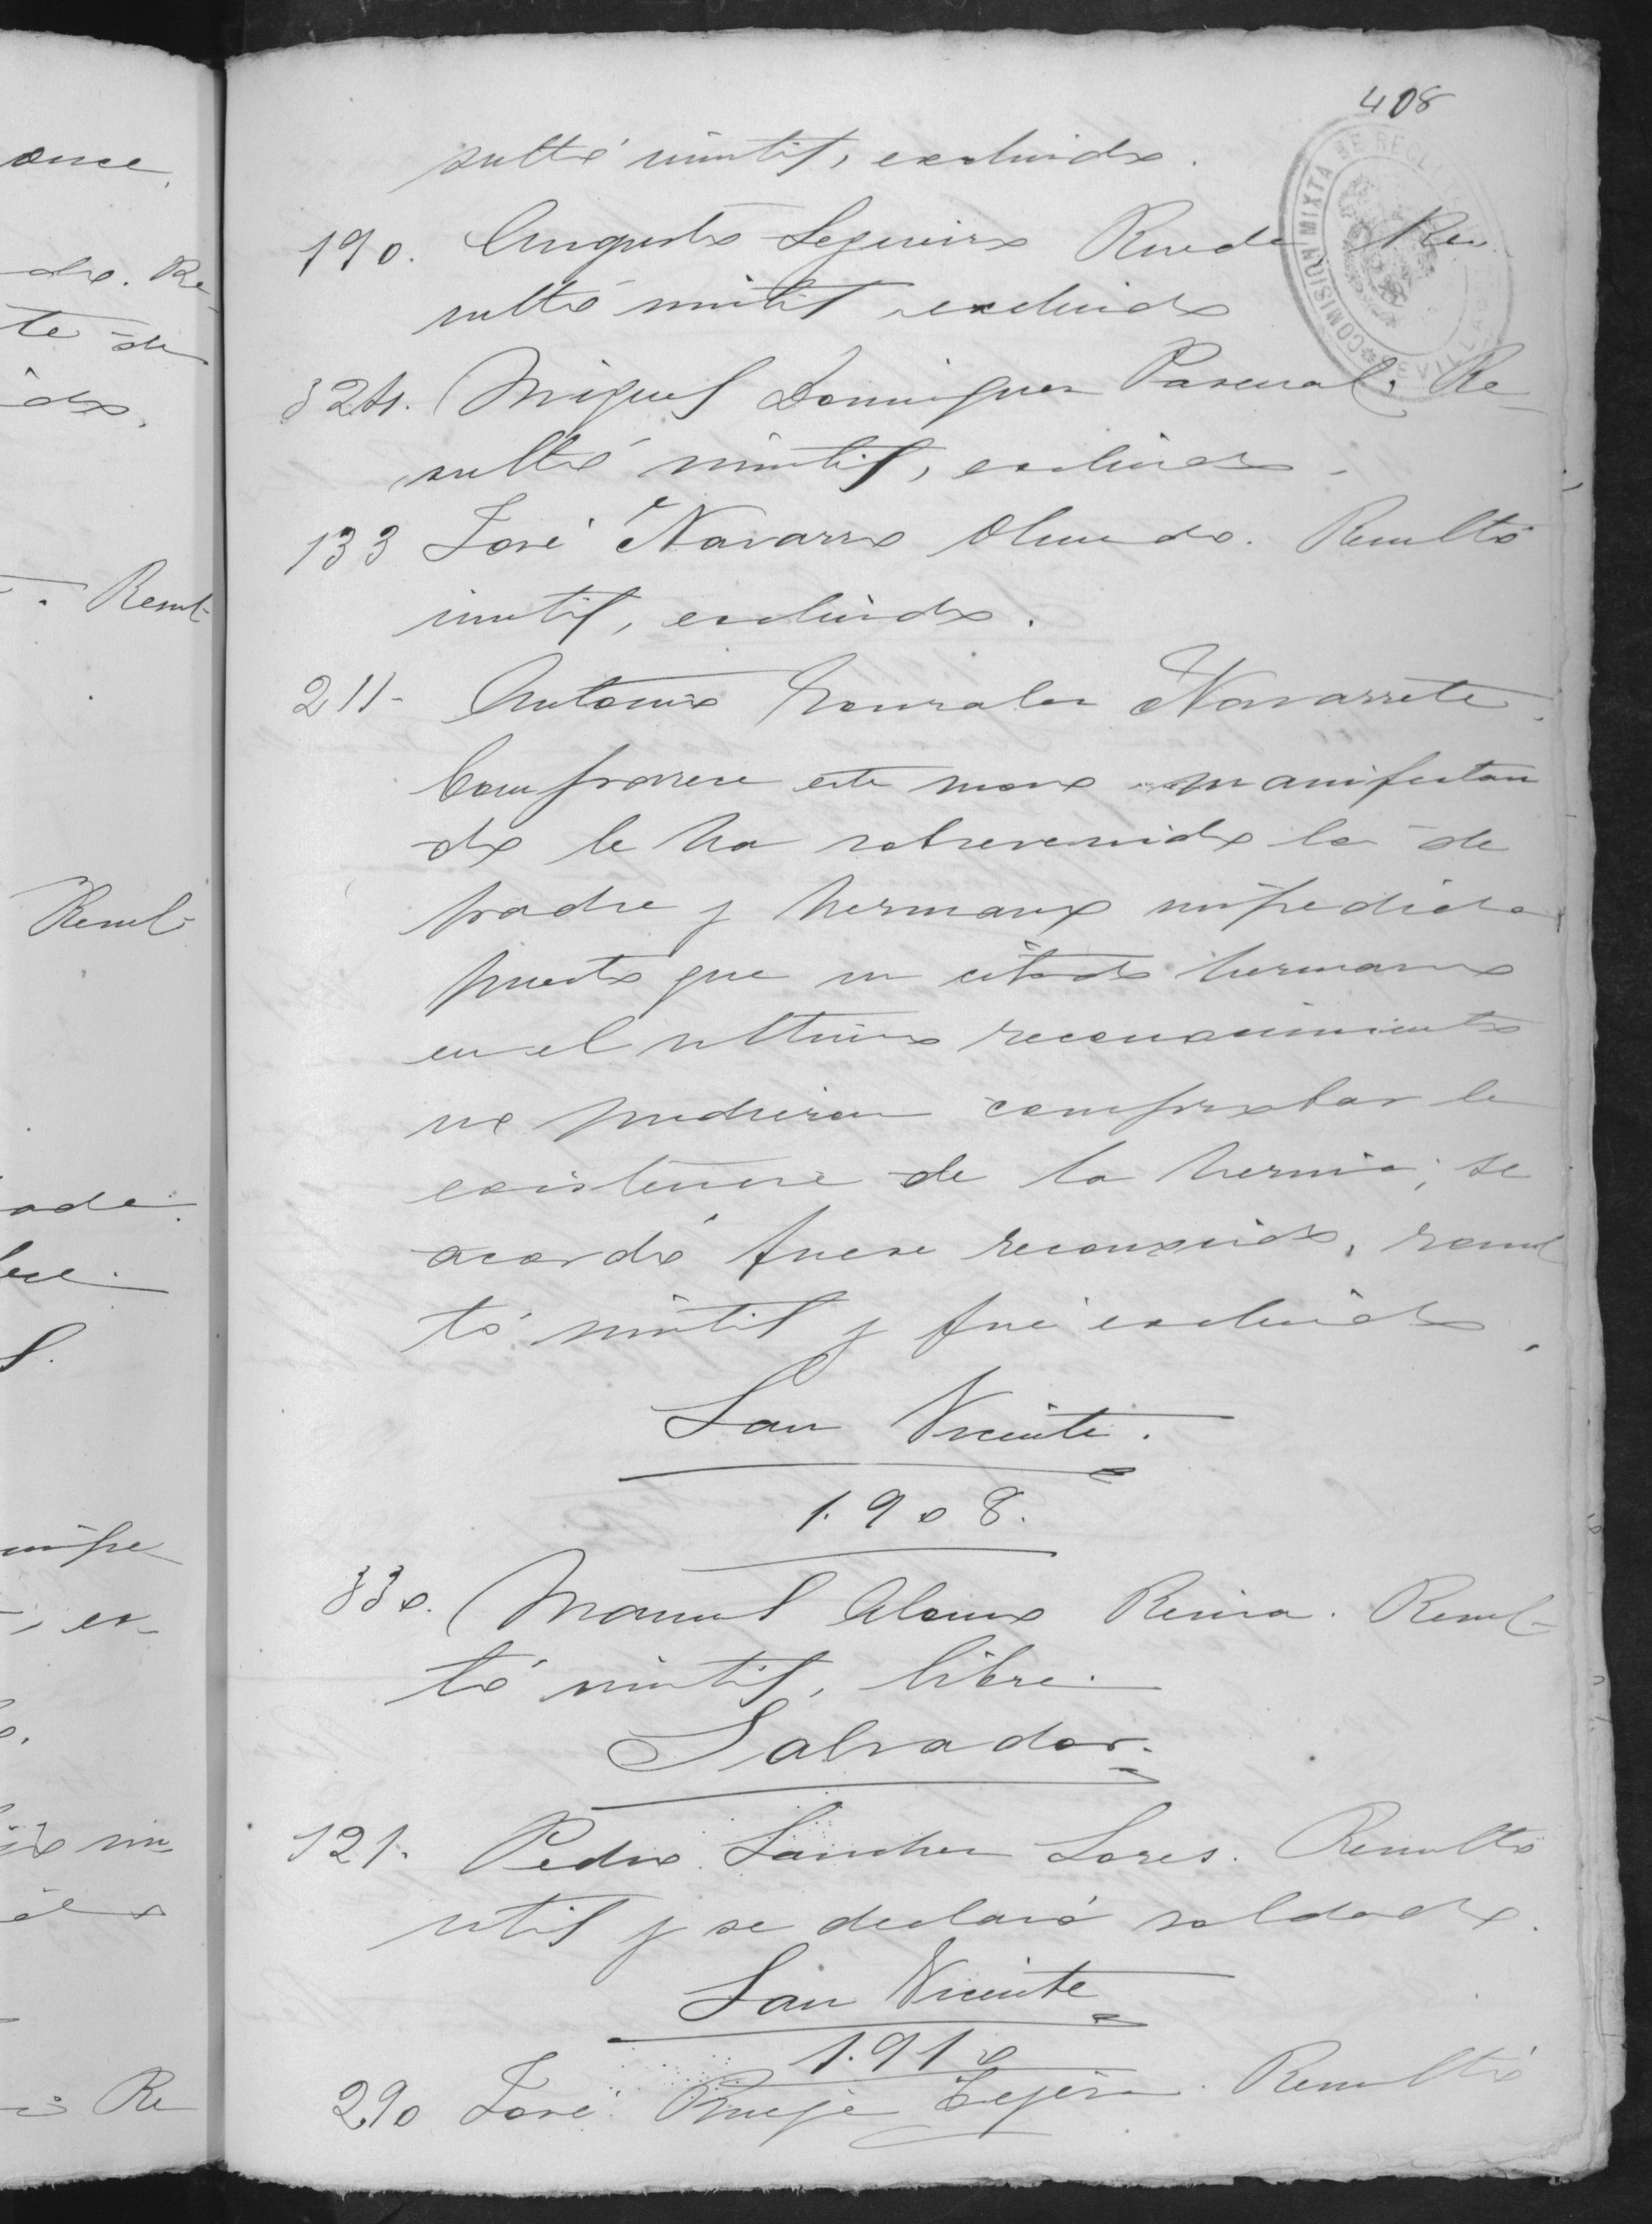 408
sultó inutil, excluido.
190. Augusto Segueira Rueda Re-
sultó inutil, excluido
324. Miguel Dominguez Pascual. Re-
sultó inutil, excluido.
133 José Navarro Olmedo. Resultó
inutil, excluido.
211- Antonio Gonzalez Navarrete.
Comparece este mozo manifestan
do le ha sobrevenido la de
padre y hermano impedido
puesto que su citado hermano
en el ultimo reconocimiento
no pudieron comprobar la
existencia de la hernia; se
acordó fuese reconocido, resul
tó inutil y fué excluido.
San Vicente.
1.908.
330. Manuel Alonso Reina. Resul-
tó inutil, libre.
Salvador.
121. Pedro Sanchez Lores. Resultó
util y se declaró soldado.
San Vicente
1.910
290 José Tejera. Resultó
COMISION MIXTA DE RECLUTAMIENTO
SEVILLA
once
do. Re-
te de
ido.
. Resul-
Resul-
impe
ex-
Re